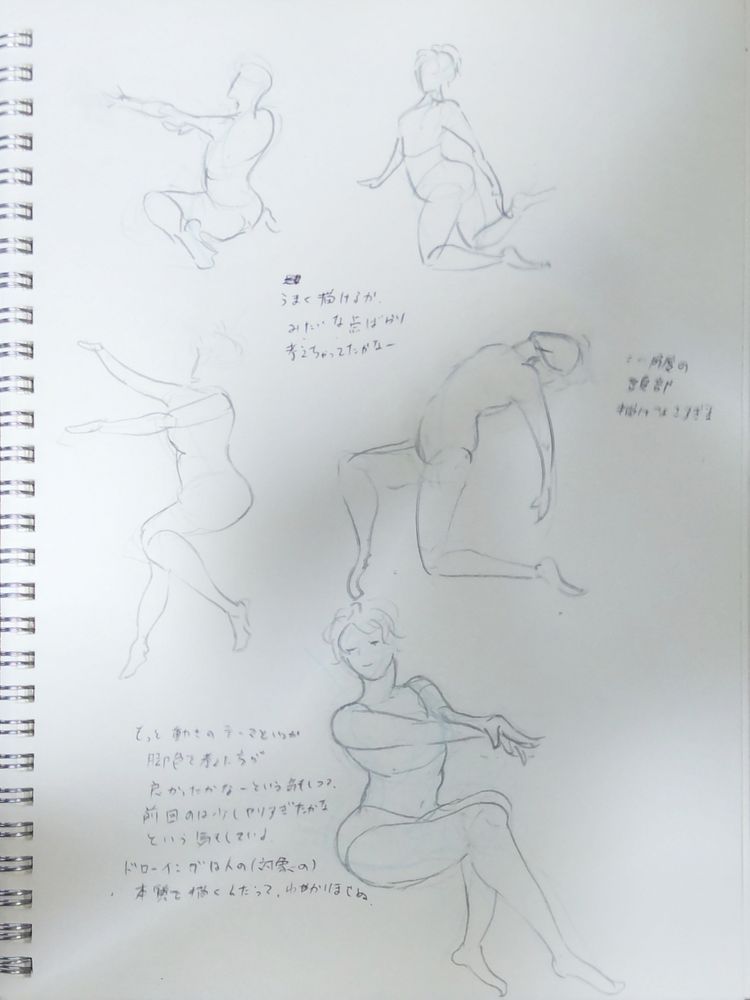 うまく描けるか、
みたいな点ばかり
考えちゃってたかなー
この角度の
頭部
描けなさすぎる
もっと動きのテーマというか
脚色を考えた方が
良かったかなーという気もしつつ、
前回のは少しやりすぎたかな
という気もしている。
ドローイングは人の(対象の)
本質を描くんだって、わかりはじめ